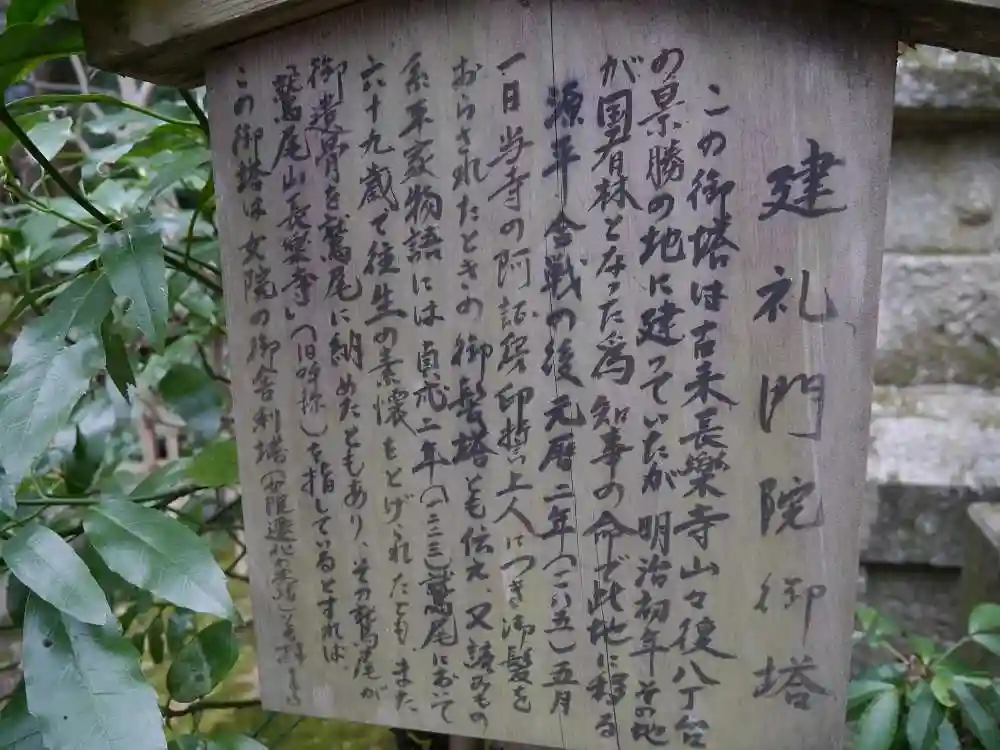 建礼門院御塔
この御塔は古来長楽寺山々後八丁台
の景勝の地に建っていたが明治初年その地
が国有林となった為知事の命で此地に移る
源平合戦の後元暦二年(一一八五)五月
一日当寺の阿証房印誓上人につき御髪を
おらされたときの御髪塔とも伝え、又語りもの
系平家物語には貞応二年(一二二三)鷲尾において
六十九歳で往生の素懐をとげられたとも、また
御遺骨を鷲尾に納めたともあり、その鷲尾が
鷲尾山長楽寺(旧呼称)を指しているとすれば
この御塔は女院の御舎利塔